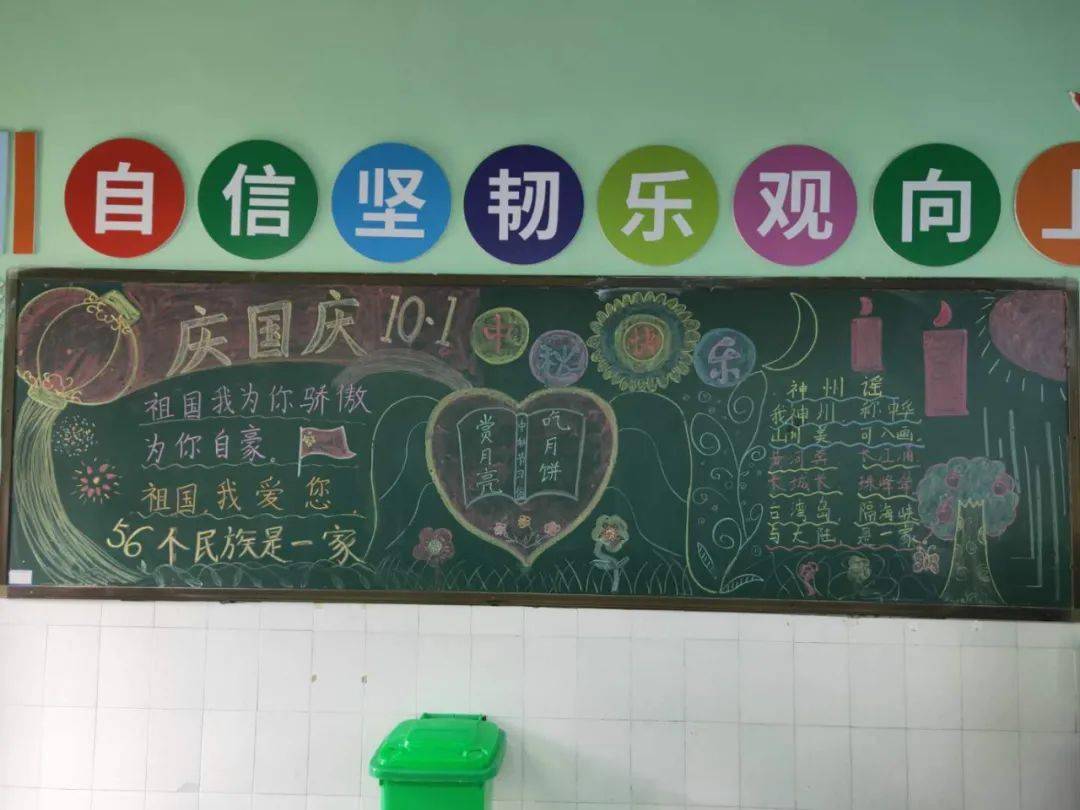 自信坚韧乐观向上
庆国庆 10·1
祖国我为你骄傲
为你自豪。
祖国,我爱您,
56个民族是一家
中秋快乐
赏月亮
吃月饼
神州谣
我神州 称中华
山川美 可入画
黄河奔 长江涌
长城长 珠峰耸
台湾岛 隔海峡
与大陆 是一家